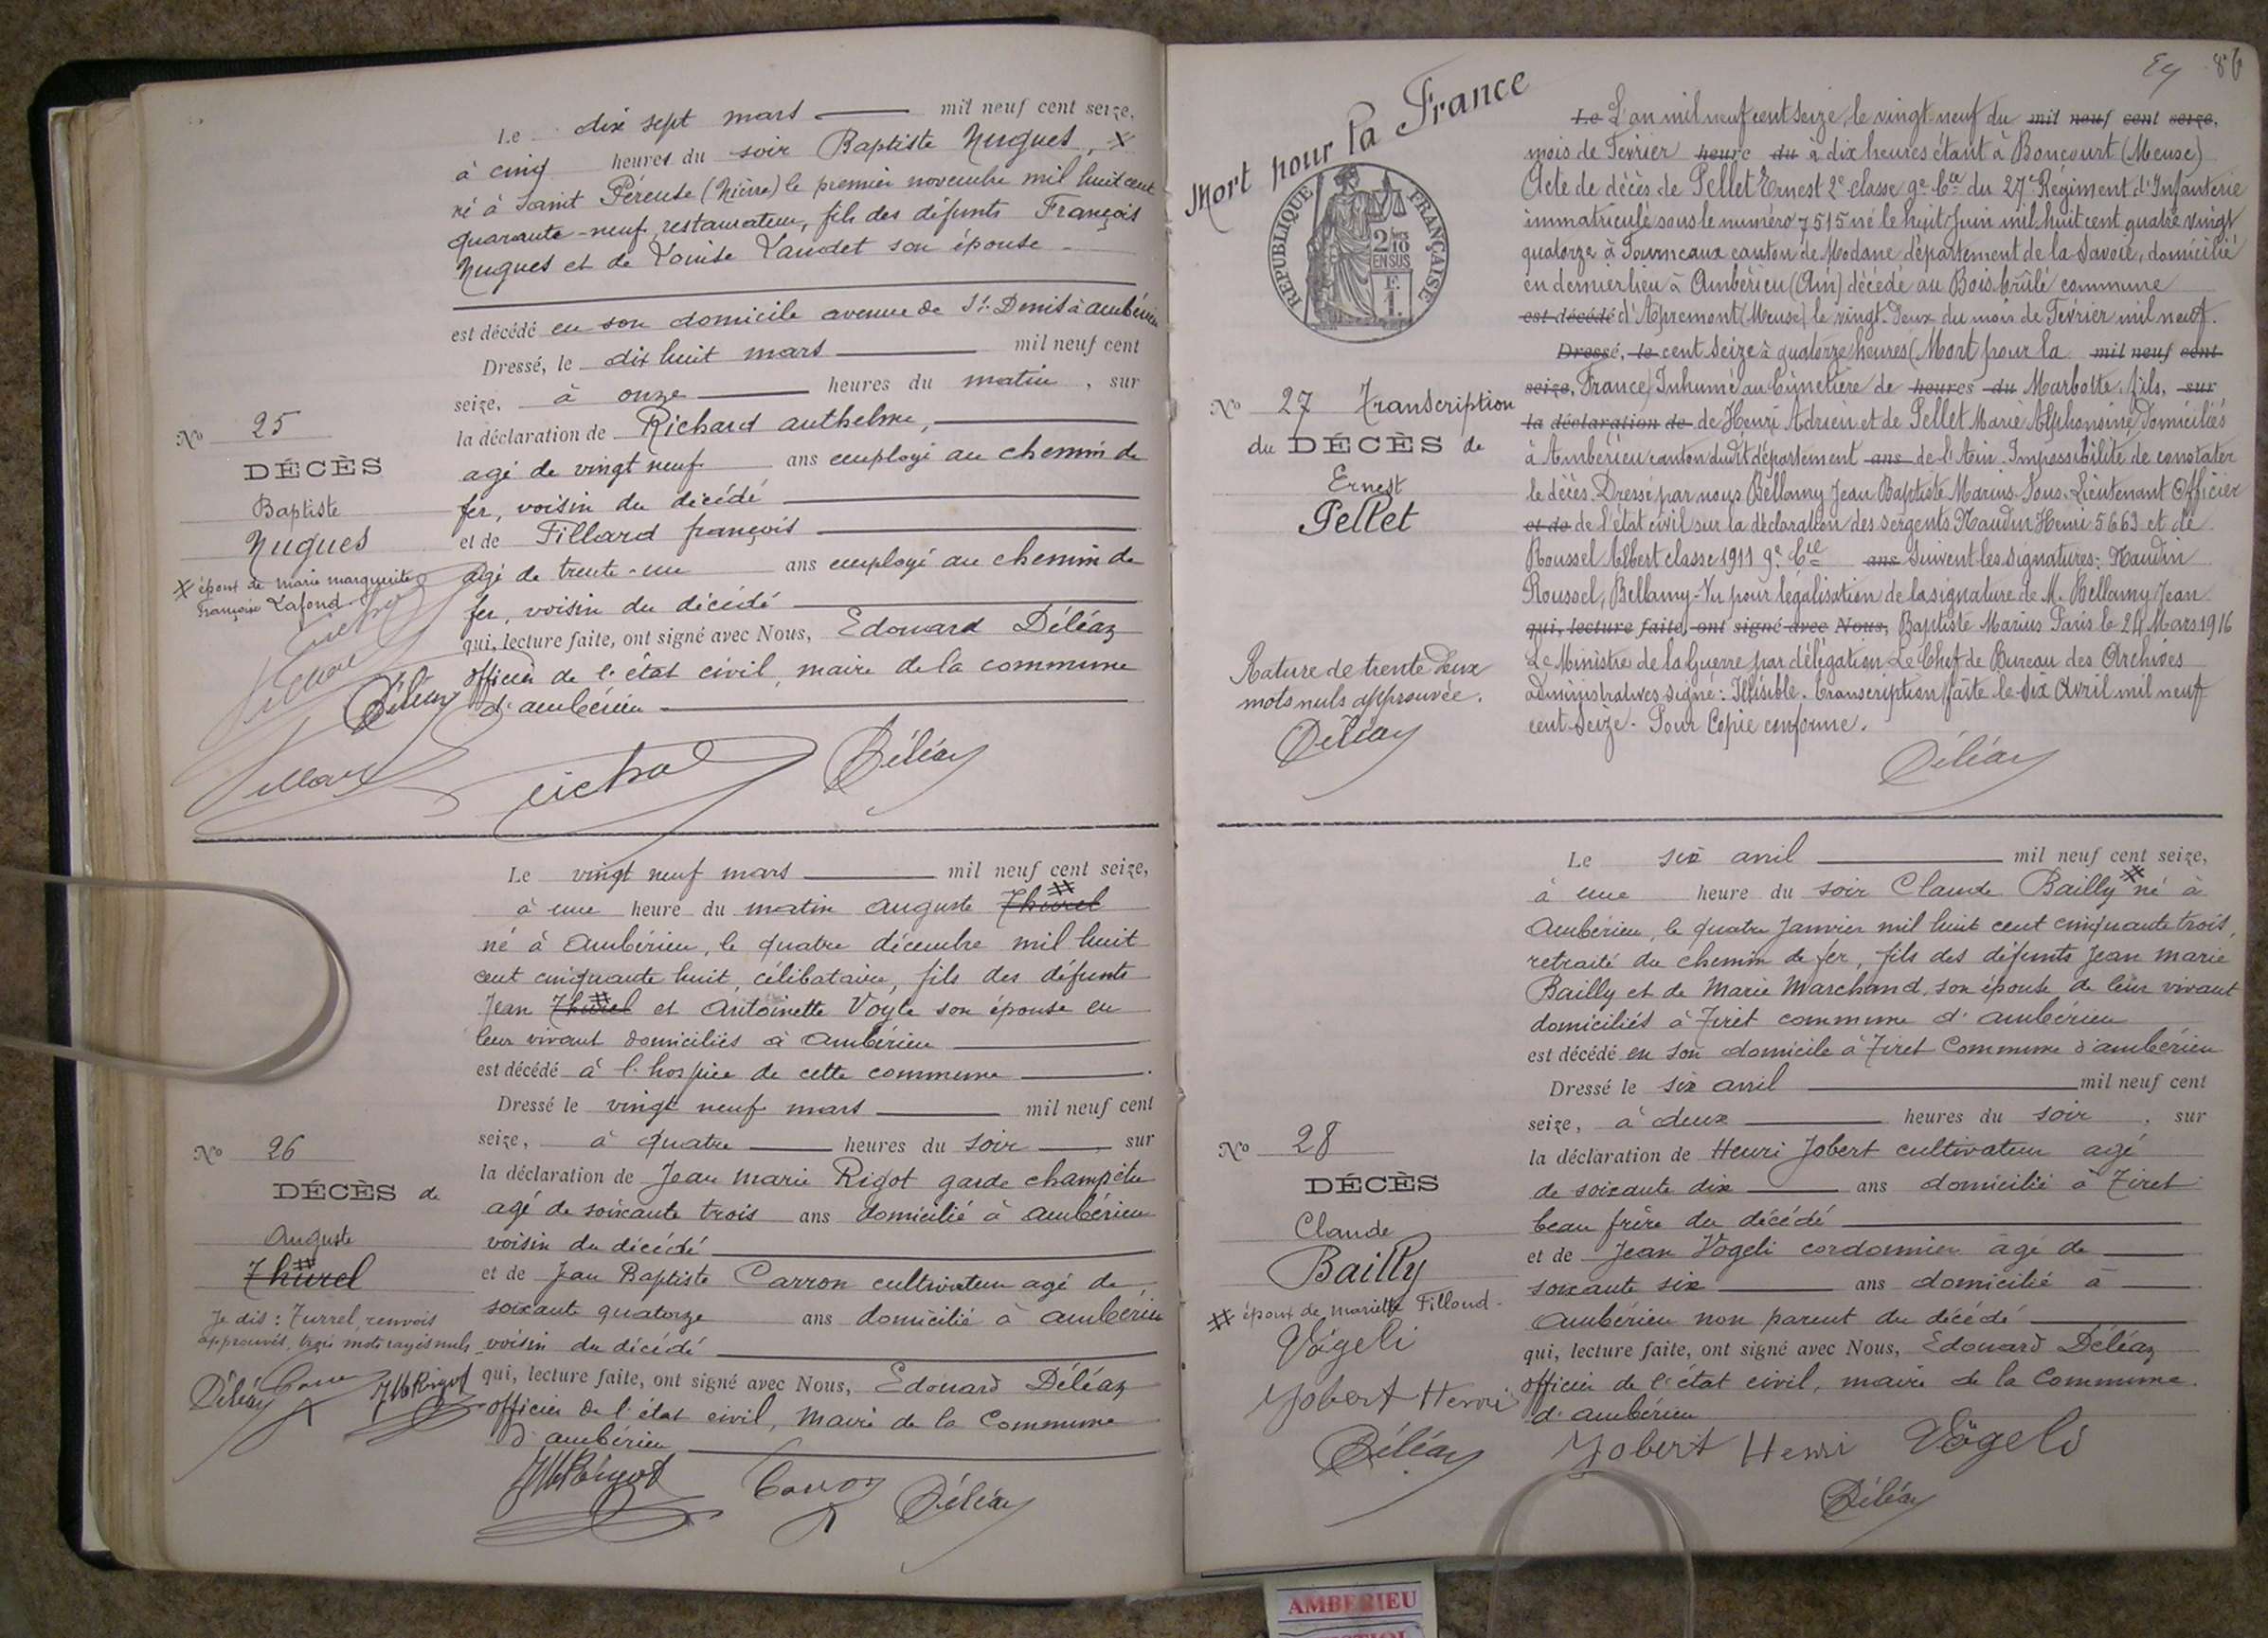 Le dix sept mars mil neuf cent seize,
à cinq heures du soir Baptiste Nugues, X
né à Saint Péreuse (Nièvre) le premier novembre mil huit cent
quarante-neuf, restaurateur, fils des défunts François
Nugues et de Louise Laudet son épouse
est décédé en son domicile avenue de St Denis à ambérieu
Dressé, le dix huit mars mil neuf cent
seize, à onze heures du matin, sur
la déclaration de Richard anthelme,
agé de vingt neuf ans employé au chemin de
fer, voisin du décédé
et de Tillard françois
agé de trente-un ans employé au chemin de
fer, voisin du décédé
qui, lecture faite, ont signé avec Nous, Edouard Déléaz
officier de l'état civil, maire de la commune
d'ambérieu
No 25
DÉCÈS
Baptiste
Nugues
X époux de marie marguerite
Françoise Lafond.
Déléaz
Déléaz
Le vingt neuf mars mil neuf cent seize,
à une heure du matin auguste Thurel #
né à ambérieu, le quatre décembre mil huit
cent cinquante huit, célibataire, fils des défunts
Jean Thurel # et antoinette Voyle son épouse en
leur vivant domiciliés à ambérieu
est décédé à l'hospice de cette commune.
Dressé le vingt neuf mars mil neuf cent
seize, à quatre heures du soir, sur
la déclaration de Jean marie Rigot garde champêtre
agé de soixante trois ans domicilié à ambérieu
voisin du décédé
et de Jean Baptiste Carron cultivateur agé de
soixante quatorze ans domicilié à ambérieu
voisin du décédé
qui, lecture faite, ont signé avec Nous, Edouard Déléaz
officier de l'état civil, maire de la Commune
d'ambérieu
No 26
DÉCÈS de
Auguste
Thurel #
Je dis : Turrel, renvois
approuvés, trois mots rayés nuls
Déléaz Carron JM Rigot
JM Rigot Carron Déléaz
Ey 86
Mort pour la France
RÉPUBLIQUE FRANÇAISE
2/10
EN SUS
F.
1.
Le L'an mil neuf cent seize, le vingt neuf du mil neuf cent seize,
mois de Février heure du à dix heures étant à Boncourt (Meuse)
Acte de décès de Pellet Ernest 2e classe 9e Cie du 27e Régiment d'Infanterie
immatriculé sous le numéro 7515 né le huit Juin mil huit cent quatre vingt
quatorze à Fourneaux canton de Modane département de la Savoie, domicilié
en dernier lieu à Ambérieu (Ain) décédé au Bois brûlé commune
est décédé d'Apremont (Meuse) le vingt-Deux du mois de Février mil neuf.
Dressé, le cent seize à quatorze heures (Mort pour la mil neuf cent
seize, France) Inhumé au Cimetière de heures du Marbotte, fils, sur
la déclaration de de Henri Adrien et de Pellet Marie Alphonsine, Domiciliés
à Ambérieu canton dudit département ans de l'Ain. Impossibilité de constater
le décès. Dressé par nous Bellamy Jean Baptiste Marius Sous-Lieutenant Officier
et de de l'état civil sur la déclaration des sergents Naudin Henri 5663 et de
Roussel Albert classe 1911 9e Cie ans Suivent les signatures: Naudin
Roussel, Bellamy - Vu pour légalisation de la signature de M. Bellamy Jean
qui, lecture faite, ont signé avec Nous, Baptiste Marius Paris le 24 Mars 1916
Le Ministre de la Guerre par délégation Le Chef de Bureau des Archives
administratives signé: Illisible. Transcription faite le six Avril mil neuf
cent seize. Pour Copie conforme.
Déléaz
No 27 Transcription
du DÉCÈS de
Ernest
Pellet
Rature de trente deux
mots nuls approuvée.
Déléaz
Le six avril mil neuf cent seize,
à une heure du soir Claude Bailly # né à
Ambérieu, le quatre Janvier mil huit cent cinquante trois,
retraité du chemin de fer, fils des défunts Jean marie
Bailly et de Marie Marchand, son épouse de leur vivant
domiciliés à Tiret commune d'ambérieu
est décédé en son domicile à Tiret Commune d'ambérieu
Dressé le six avril mil neuf cent
seize, à deux heures du soir, sur
la déclaration de Henri Jobert cultivateur agé
de soixante dix ans domicilié à Tiret
beau frère du décédé
et de Jean Vogeli cordonnier agé de
soixante six ans domicilié à
Ambérieu non parent du décédé
qui, lecture faite, ont signé avec Nous, Edouard Déléaz
officier de l'état civil, maire de la Commune.
d'ambérieu
No 28
DÉCÈS
Claude
Bailly
# époux de mariette Filloud.
Vögeli
Jobert Henri
Déléaz
Jobert Henri Vögeli
Déléaz
AMBERIEU